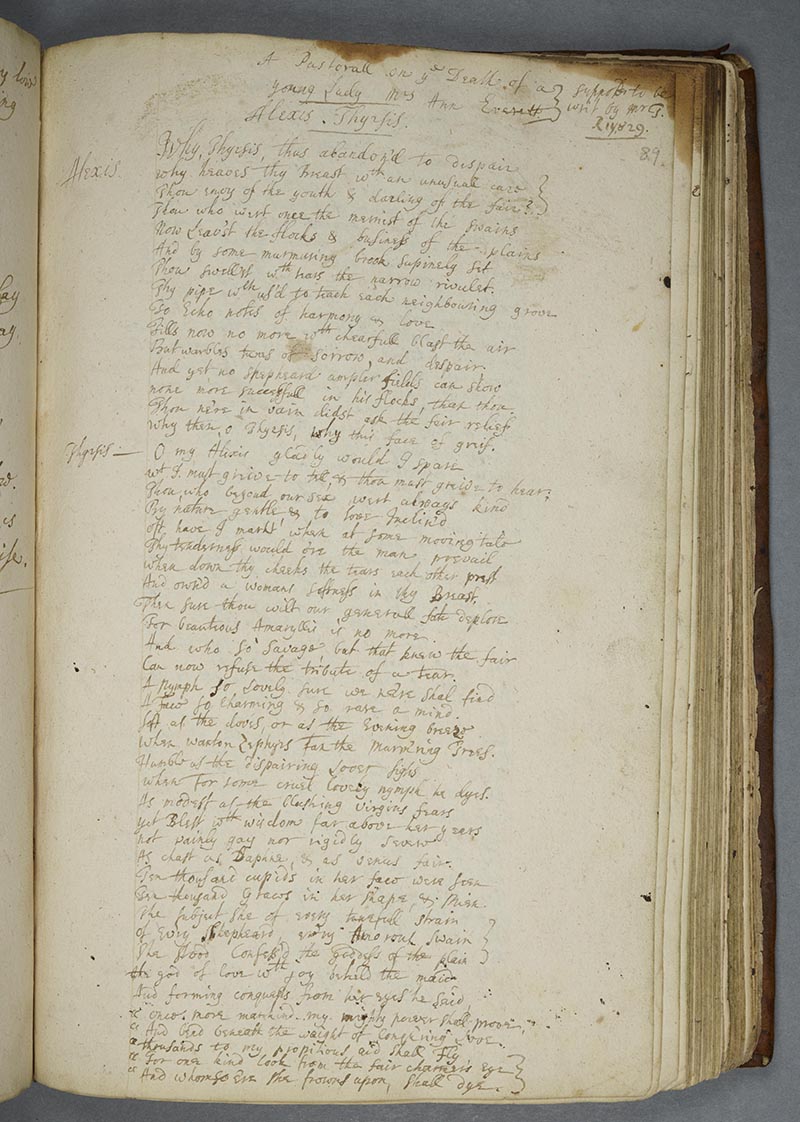 A Pastorall on yᵉ Death of a
young Lady Mrs Ann Everett
suppos'd to be
writ by Mr G.
Alexis. Thyrsis.
89
Alexis.
Why, Thyrsis, thus abandon'd to despair
why heaves thy Breast wth an unusual care
Thou envy of the youth & darling of the fair?
Thou who wert once the merriest of the swains
Now Leav'st the flocks & business of the plains
And by some murmuring brook supinely set
Thou swellest wth tears the narrow rivulet.
Thy pipe wch us'd to teach each neighbouring grove
To Echo notes of harmony & love
Fills now no more wth chearfull blast the air
But warbles tunes of sorrow, and despair.
And yet no shepheard ampler fields can show
none more successfull in his flocks, than thou.
Thou nere in vain didst ask the fair relief
Why then, o Thyrsis, why this face of grief.
Thyrsis—
O my Alexis gladly would I spare
wt I must grieve to tell, & thou must greive to hear;
Thou, who beyond our sex wert always kind
By nature gentle & to love Inclin'd
oft have I markt when at some moving tale
Thy tenderness would o're the man prevail
when down thy cheeks the tears each other prest
And own'd a womans softness in thy Breast.
Then sure thou wilt our generall fate deplore
For beautious Amaryllis is no more.
And who so savage, but that knew the fair
Can now refuse the tribute of a tear.
A Nymph so lovely sure we nere shal find
A face so charming & so rare a mind.
Soft as the doves, or as the Evening breeze
when wanton Zephyrs Fan the Murm'ring Trees.
Humble as the dispairing Lover sighs
when For some cruel lovely nymph he dyes.
As modest as the blushing virgins fears
yet Blest wth wisdom far above her years
not vainly gay nor rigidly severe
As chast as Daphne, & as venus fair.
Ten thousand cupids in her face were seen
Ten thousand Graces in her shape, & Mien.
The subject she of every tunefull strain
of Every Shepheard, every Amorous swain
She stood Confess'd the goddess of the plain
The god of love wth joy beheld the maid
And forming conquests from her eyes he said
" once more mankind my mighty power shall prove,
" And bend beneath the waight of Conquering Love.
" thousands to my propitious aid shall fly
" For one kind look from the fair charmers eye
" And whomso Ere she frowns upon, shall dye.